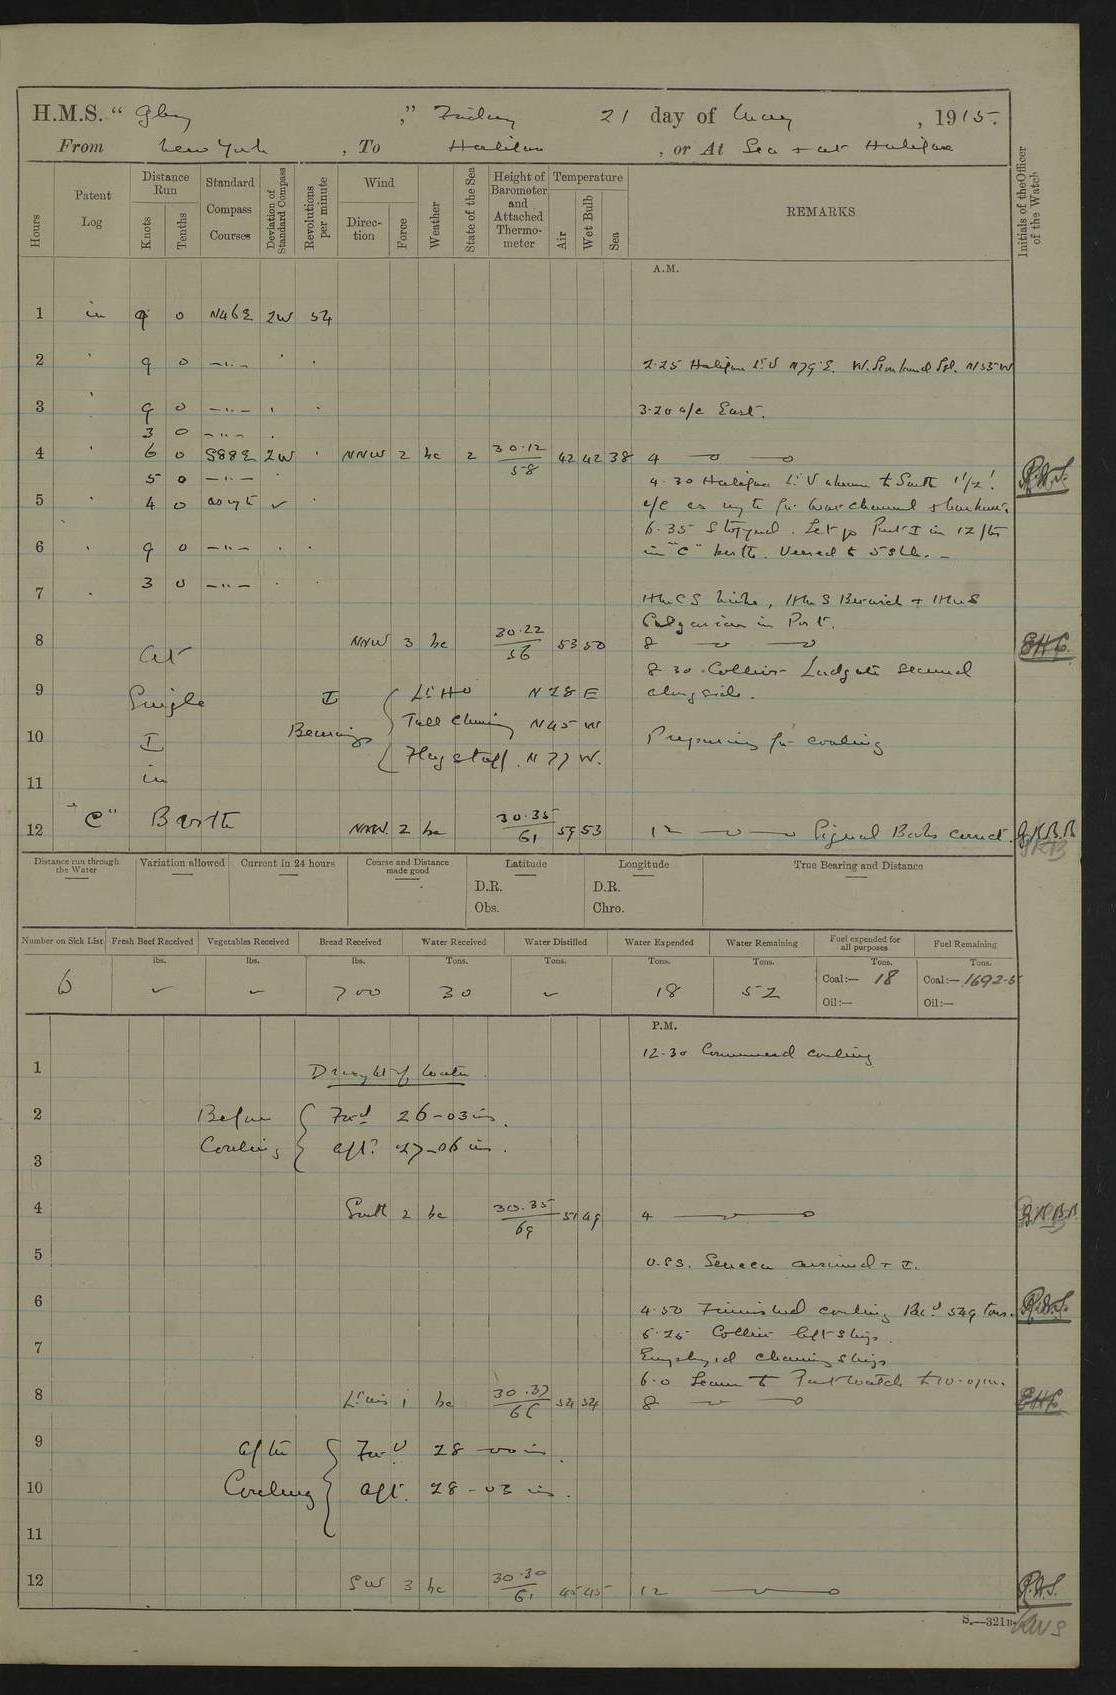 H.M.S. " Glory ," Friday 21 day of May , 1915.
From New York , To Halifax , or At Sea + at Halifax
Hours
Patent Log
Distance Run
Knots
Tenths
Standard Compass Courses
Deviation of Standard Compass
Revolutions per minute
Wind
Direction
Force
Weather
State of the Sea
Height of Barometer and Attached Thermometer
Temperature
Air
Wet Bulb
Sea
REMARKS
Initials of the Officer of the Watch
A.M.
1 in 9 0 N46E 2W 54
2 9 0 —"— 2.25 Halifax Lt V N79°E.
3 9 0 —"— 3.20 a/c East.
3 0 —"—
4 6 0 S88E 2W NNW 2 bc 2 30.12 58 42 42 38 4
5 0 —"— 4.30 Halifax Lt V abeam to South 1½'.
5 4 0 as reqte ✓ a/c as reqte for War channel + harbour.
6.35 Stopped. Let go Port I in 12 fms
6 9 0 —"— in "C" berth. Veered to 5 shls.
7 3 0 —"—
HMCS Niobe, HMS Berwick + HMS
Calgarian in Port.
8 NNW 3 bc 30.22 56 53 50 8 EHC.
At 8 30 Collier Ludgate secured
9 Single I Lt Ho N 28 E alongside.
Bearings Tall Chimney N45 W
10 I Preparing for coaling
Flagstaff. N 77 W.
11 in
12 "C" Berth NNW. 2 bc 30.35 61 59 53 12 Signal Books correct.
Distance run through the Water
Variation allowed
Current in 24 hours
Course and Distance made good
Latitude
D.R.
Obs.
Longitude
D.R.
Chro.
True Bearing and Distance
Number on Sick List
Fresh Beef Received
Vegetables Received
Bread Received
Water Received
Water Distilled
Water Expended
Water Remaining
Fuel expended for all purposes
Fuel Remaining
lbs. lbs. lbs. Tons. Tons. Tons. Tons. Tons. Tons.
6 ✓ ✓ 700 30 ✓ 18 52 Coal:— 18 Coal:— 1692.5
Oil:— Oil:—
P.M.
12.30 Commenced coaling
1 Draught of Water
2 Before Fwd 26-03 ins.
3 Coaling aft. 27-06 ins.
4 South 2 bc 30.35 69 51 49 4
5 U.S.S. Seneca arrived + I.
6 4.50 Finished coaling Recd 549 tons.
5.25 Collier left ship.
7 Employed cleaning ship
6.0 Leave to Port Watch to 10.0 p.m.
8 Lt airs 1 bc 30.37 66 54 54 8 EHC
9 After Fwd 28-00 in.
10 Coaling aft. 28-03 ins.
11
12 SW 3 bc 30.30 61 45 45 12
S.—321B.